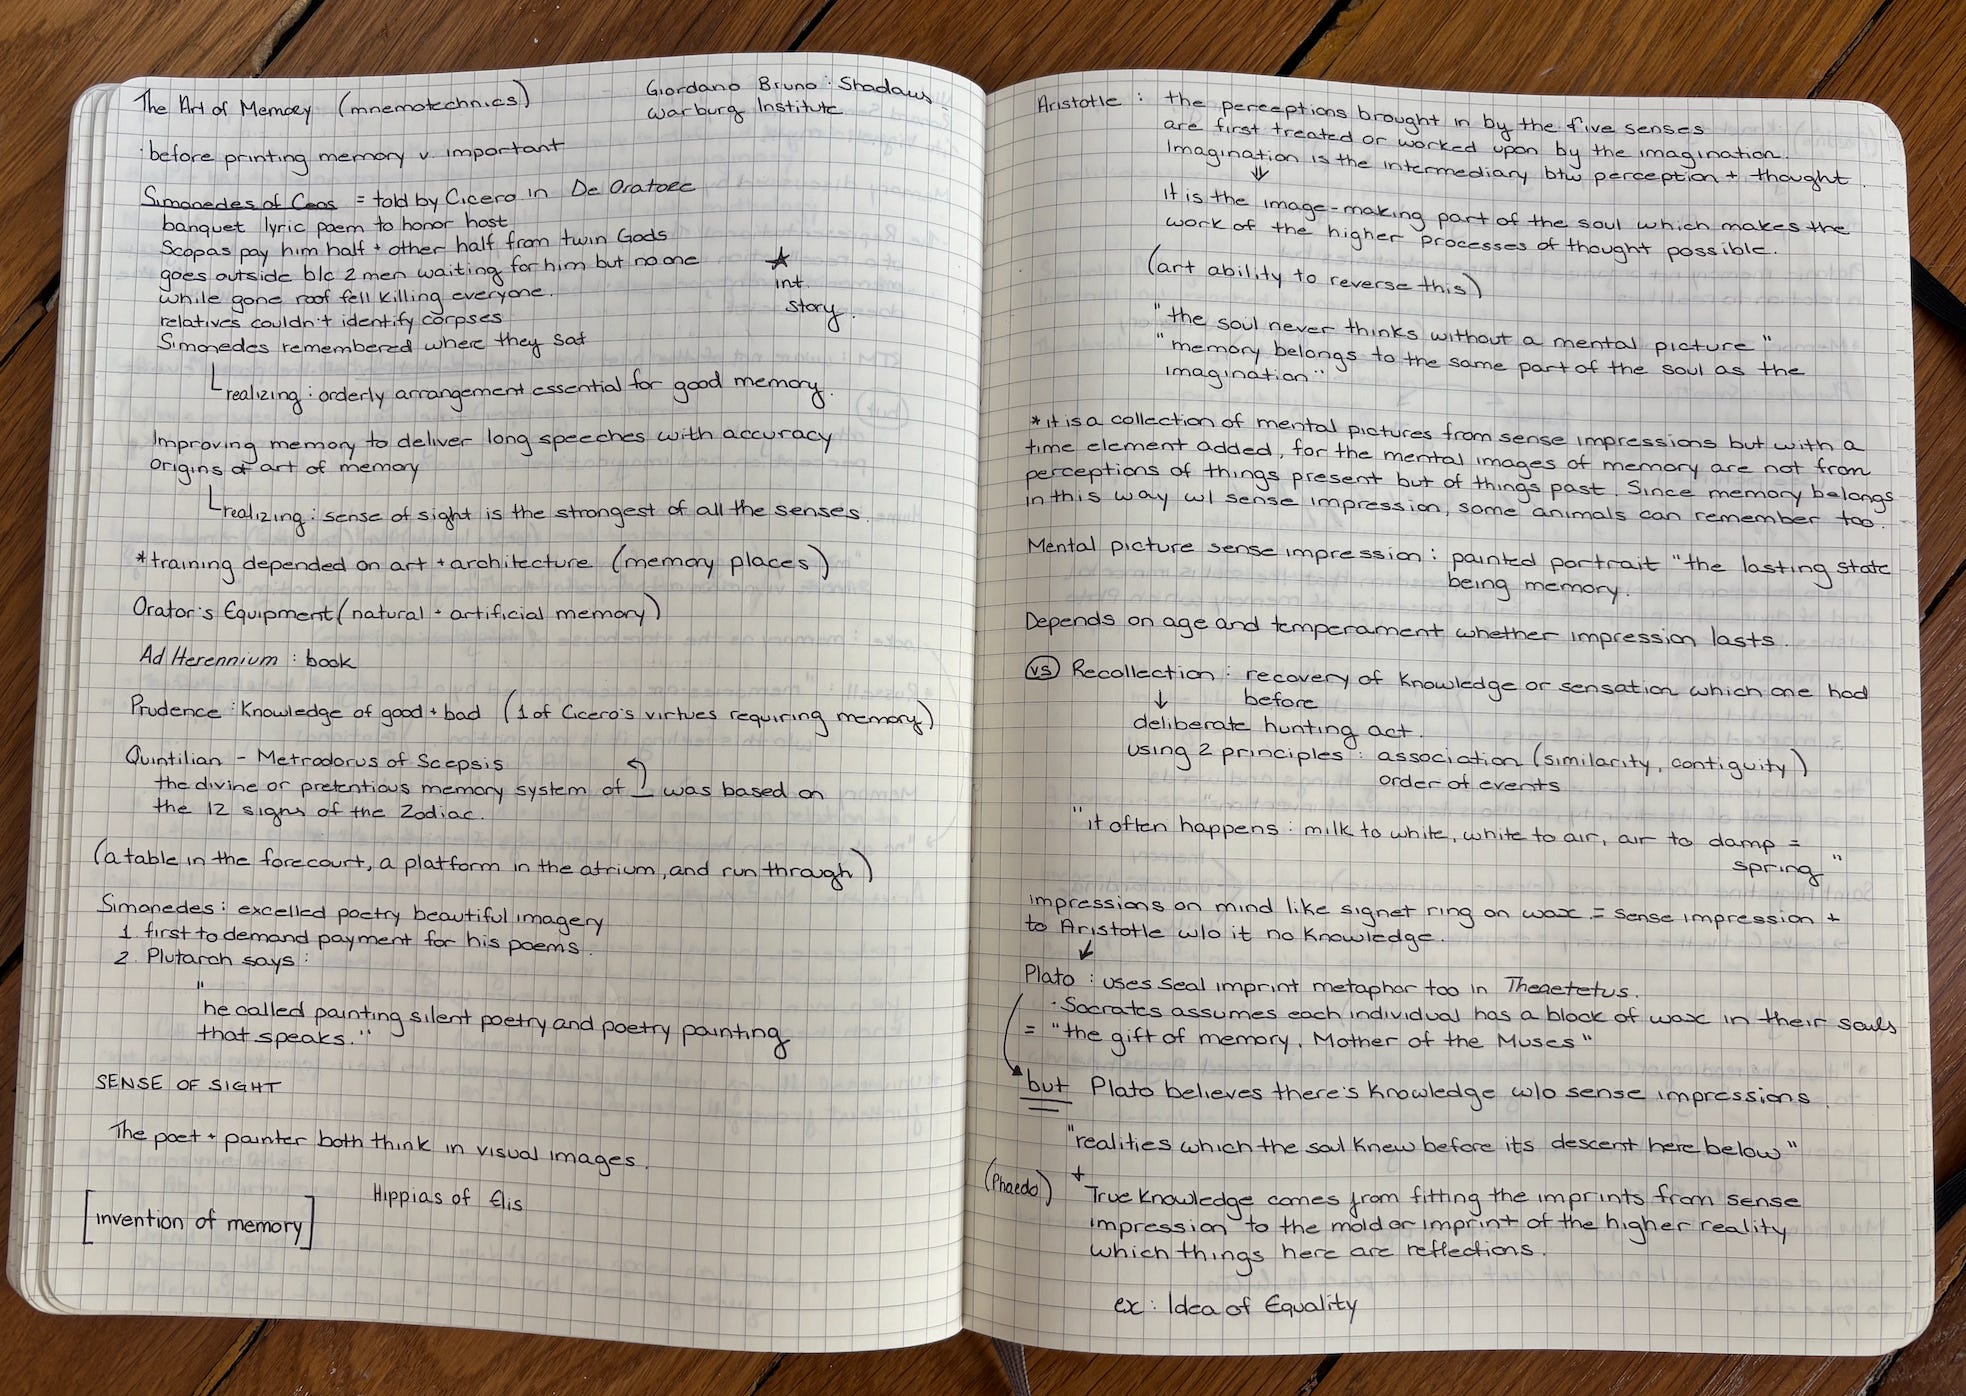 The Art of Memory (mnemotechnics)
Giordano Bruno : Shadows
Warburg Institute
before printing memory v. important
Simonedes of Ceos = told by Cicero in De Oratore
banquet lyric poem to honor host
Scopas pay him half + other half from twin Gods
goes outside b/c 2 men waiting for him but no one
while gone roof fell killing everyone.
relatives couldn't identify corpses
Simonedes remembered where they sat
int.
story.
realizing : orderly arrangement essential for good memory.
Improving memory to deliver long speeches with accuracy
origins of art of memory
realizing : sense of sight is the strongest of all the senses.
*training depended on art + architecture (memory places)
Orator's Equipment (natural + artificial memory)
Ad Herennium : book
Prudence : Knowledge of good + bad (1 of Cicero's virtues requiring memory)
Quintilian - Metrodorus of Scepsis
the divine or pretentious memory system of ↑ was based on
the 12 signs of the Zodiac.
(a table in the forecourt, a platform in the atrium, and run through)
Simonedes : excelled poetry beautiful imagery
1. first to demand payment for his poems.
2. Plutarch says :
"he called painting silent poetry and poetry painting
that speaks."
SENSE OF SIGHT
The poet + painter both think in visual images.
Hippias of Elis
[invention of memory]
Aristotle : the perceptions brought in by the five senses
are first treated or worked upon by the imagination.
Imagination is the intermediary btw perception + thought.
↓
it is the image-making part of the soul which makes the
work of the higher processes of thought possible.
(art ability to reverse this)
"the soul never thinks without a mental picture"
"memory belongs to the same part of the soul as the
imagination"
*it is a collection of mental pictures from sense impressions but with a
time element added, for the mental images of memory are not from
perceptions of things present but of things past. Since memory belongs
in this way w/ sense impression, some animals can remember too.
Mental picture sense impression : painted portrait "the lasting state
being memory.
Depends on age and temperament whether impression lasts.
(vs) Recollection : recovery of knowledge or sensation which one had
before
↓
deliberate hunting act.
using 2 principles : association (similarity, contiguity)
order of events
"it often happens : milk to white, white to air, air to damp =
spring"
impressions on mind like signet ring on wax = sense impression +
to Aristotle w/o it no knowledge.
↓
Plato : uses seal imprint metaphor too in Theaetetus.
· Socrates assumes each individual has a block of wax in their souls
= "the gift of memory, Mother of the Muses"
but Plato believes there's knowledge w/o sense impressions.
"realities which the soul knew before its descent here below"
(Phaedo) +
True knowledge comes from fitting the imprints from sense
impression to the mold or imprint of the higher reality
which things here are reflections.
ex : Idea of Equality